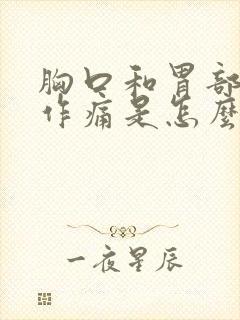 胸口和胃部
作痛是怎麼
一夜星辰